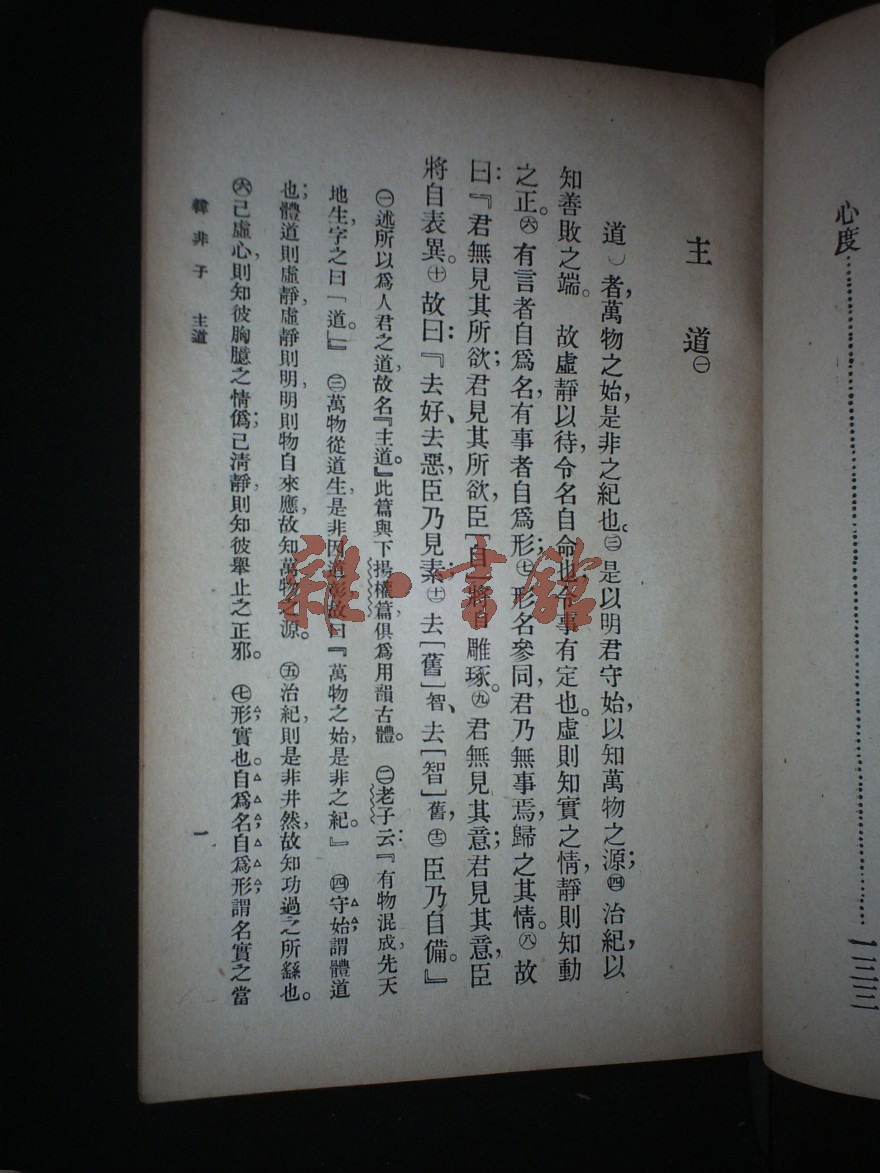 心度……………………………………一三三
主道㊀
道㊁者，萬物之始，是非之紀也。㊂是以明君守始，以知萬物之源；㊃治紀，以
知善敗之端。故虛靜以待，令名自命也，令事有定也。虛則知實之情，靜則知動
之正。㊅有言者自爲名，有事者自爲形；㊆形名參同，君乃無事焉，歸之其情。㊇故
曰：『君無見其所欲；君見其所欲，臣[自]將自雕琢。㊈君無見其意；君見其意，臣
將自表異。㊉故曰：『去好、去惡，臣乃見素；㈩㊀去[舊]智、去[智]舊，㈩㊁臣乃自備。』
㊀述所以爲人君之道，故名『主道。』此篇與下揚權篇俱爲用韻古體。㊁老子云：『有物混成，先天
地生，字之曰「道。」』㊂萬物從道生，是非因道彰，故曰『萬物之始，是非之紀。』㊃守始，謂體道
也；體道則虛靜，虛靜則明，明則物自來應，故知萬物之源。㊄治紀，則是非井然，故知功過之所繇也。
㊅己虛心，則知彼胸臆之情僞；己清靜，則知彼舉止之正邪。㊆形，實也。自爲名，自爲形，謂名實之當
韓非子 主道
一
雜·書館